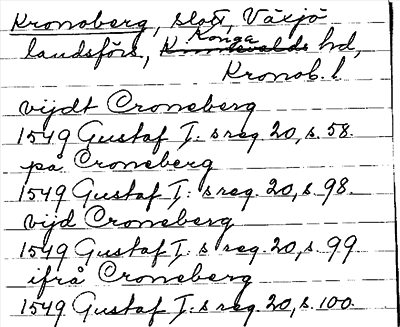 Kronoberg, slott, Växjö
landsförs., Konga hd,
Kronob. l
vijdt Croneberg
1549 Gustaf I: s reg. 20, s. 58.
på Croneberg
1549 Gustaf I: s reg. 20, s. 98.
vijd Croneberg
1549 Gustaf I: s reg. 20, s. 99
ifrå Croneberg
1549 Gustaf I: s reg. 20, s. 100.